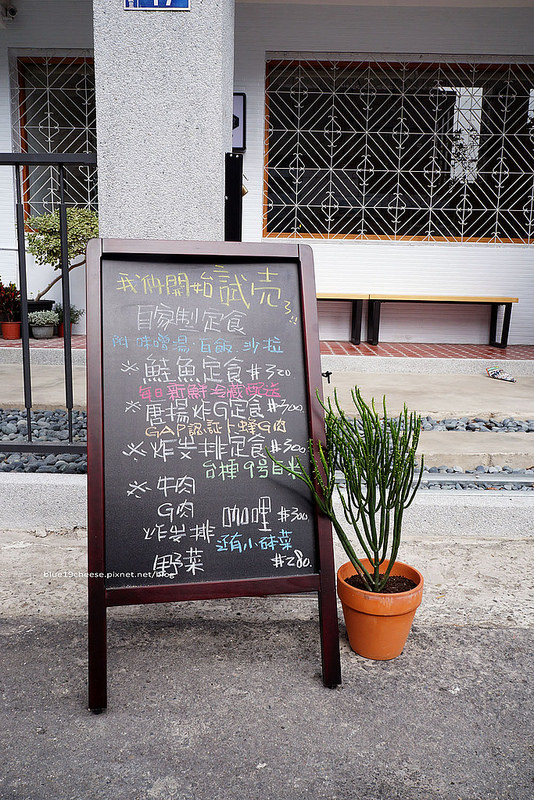 17
我们開始試売3!!
自家製定食
附味噌湯.百飯.沙拉
※鮭魚定食 #320
每日新鮮冷藏配送
※唐揚炸G定食 #300
GAP認証卜蜂G肉
※炸豬排定食 #300
台稉9号白米
※牛肉
G肉
炸豬排 咖哩 #300
还有小缽菜
野菜 #280.
blue19cheese.pixnet.net/blog